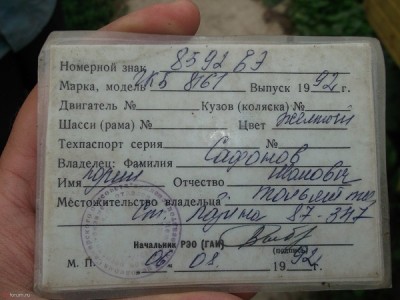 Номерной знак 8592 БЭ
Марка, модель УКБ 8161 Выпуск 1992г.
Двигатель № Кузов (коляска) №
Шасси (рама) № Цвет желтый
Техпаспорт серия №
Владелец: Фамилия Сафонов
Имя Юрий Отчество Иванович
Местожительство владельца г. Тольятти,
87-347
Начальник РЭО (ГАИ)
(подпись)
М. П. 06. 08. 1992г.
forum.ru